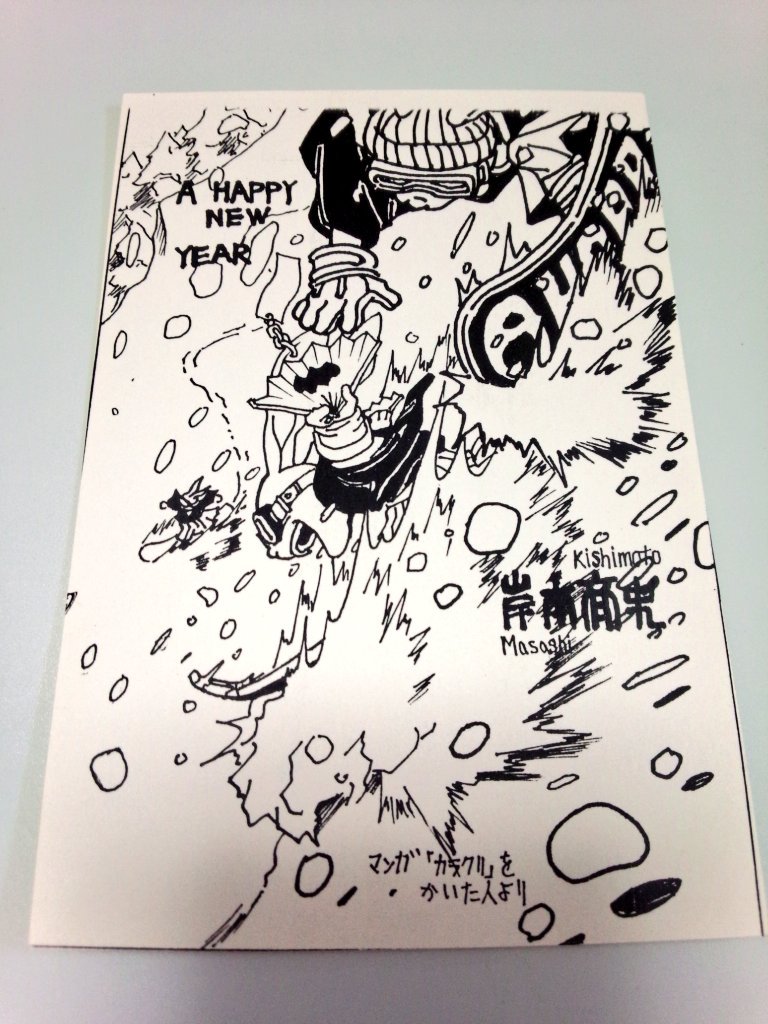 A HAPPY
NEW
YEAR
Kishimoto
岸本斉史
Masashi
マンガ「カラクリ」を
かいた人より